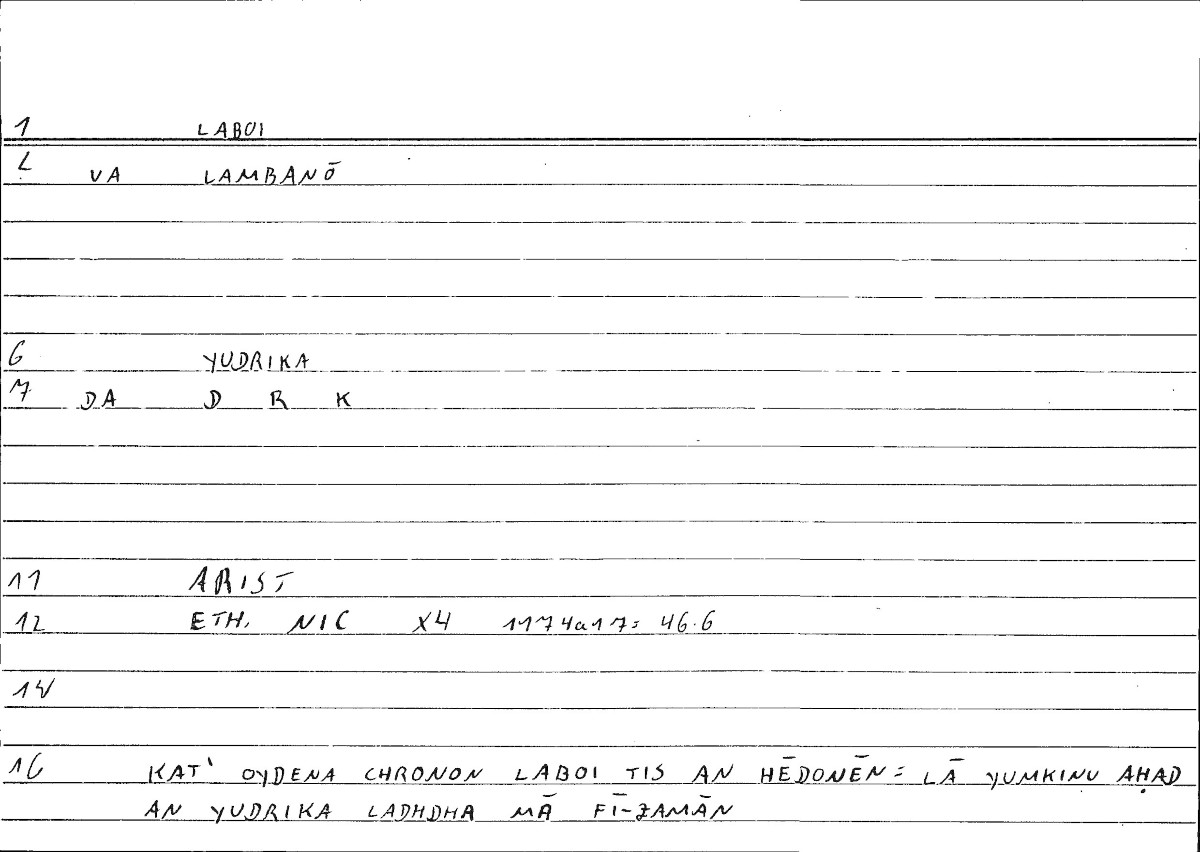 1 LABOI
2 VA LAMBANŌ
6 YUDRIKA
7 DA D R K
11 ARIST
12 ETH. NIC X4 1174a17= 46.6
14
16 KAT' OYDENA CHRONON LABOI TIS AN HĒDONĒN = LĀ YUMKINU AḤAD
AN YUDRIKA LADHDHA MĀ FĪ-ZAMĀN